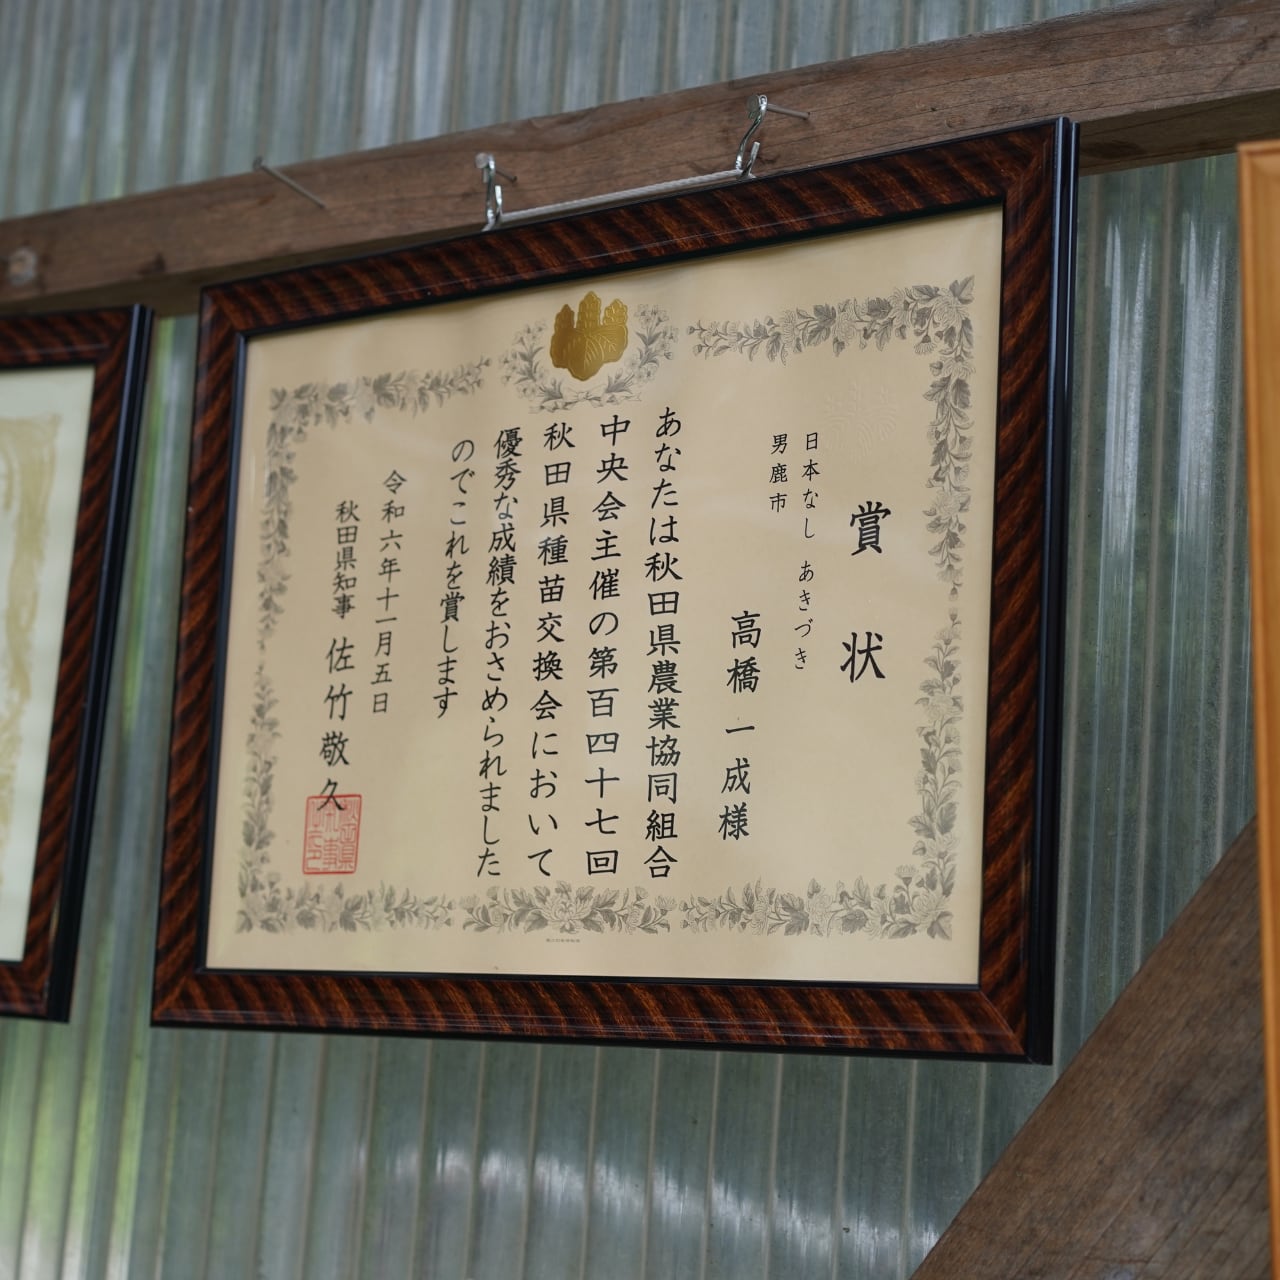 賞状
日本なし あきづき
男鹿市
高橋一成様
あなたは秋田県農業協同組合
中央会主催の第百四十七回
秋田県種苗交換会において
優秀な成績をおさめられました
のでこれを賞します
令和六年十一月五日
秋田県知事 佐竹敬久